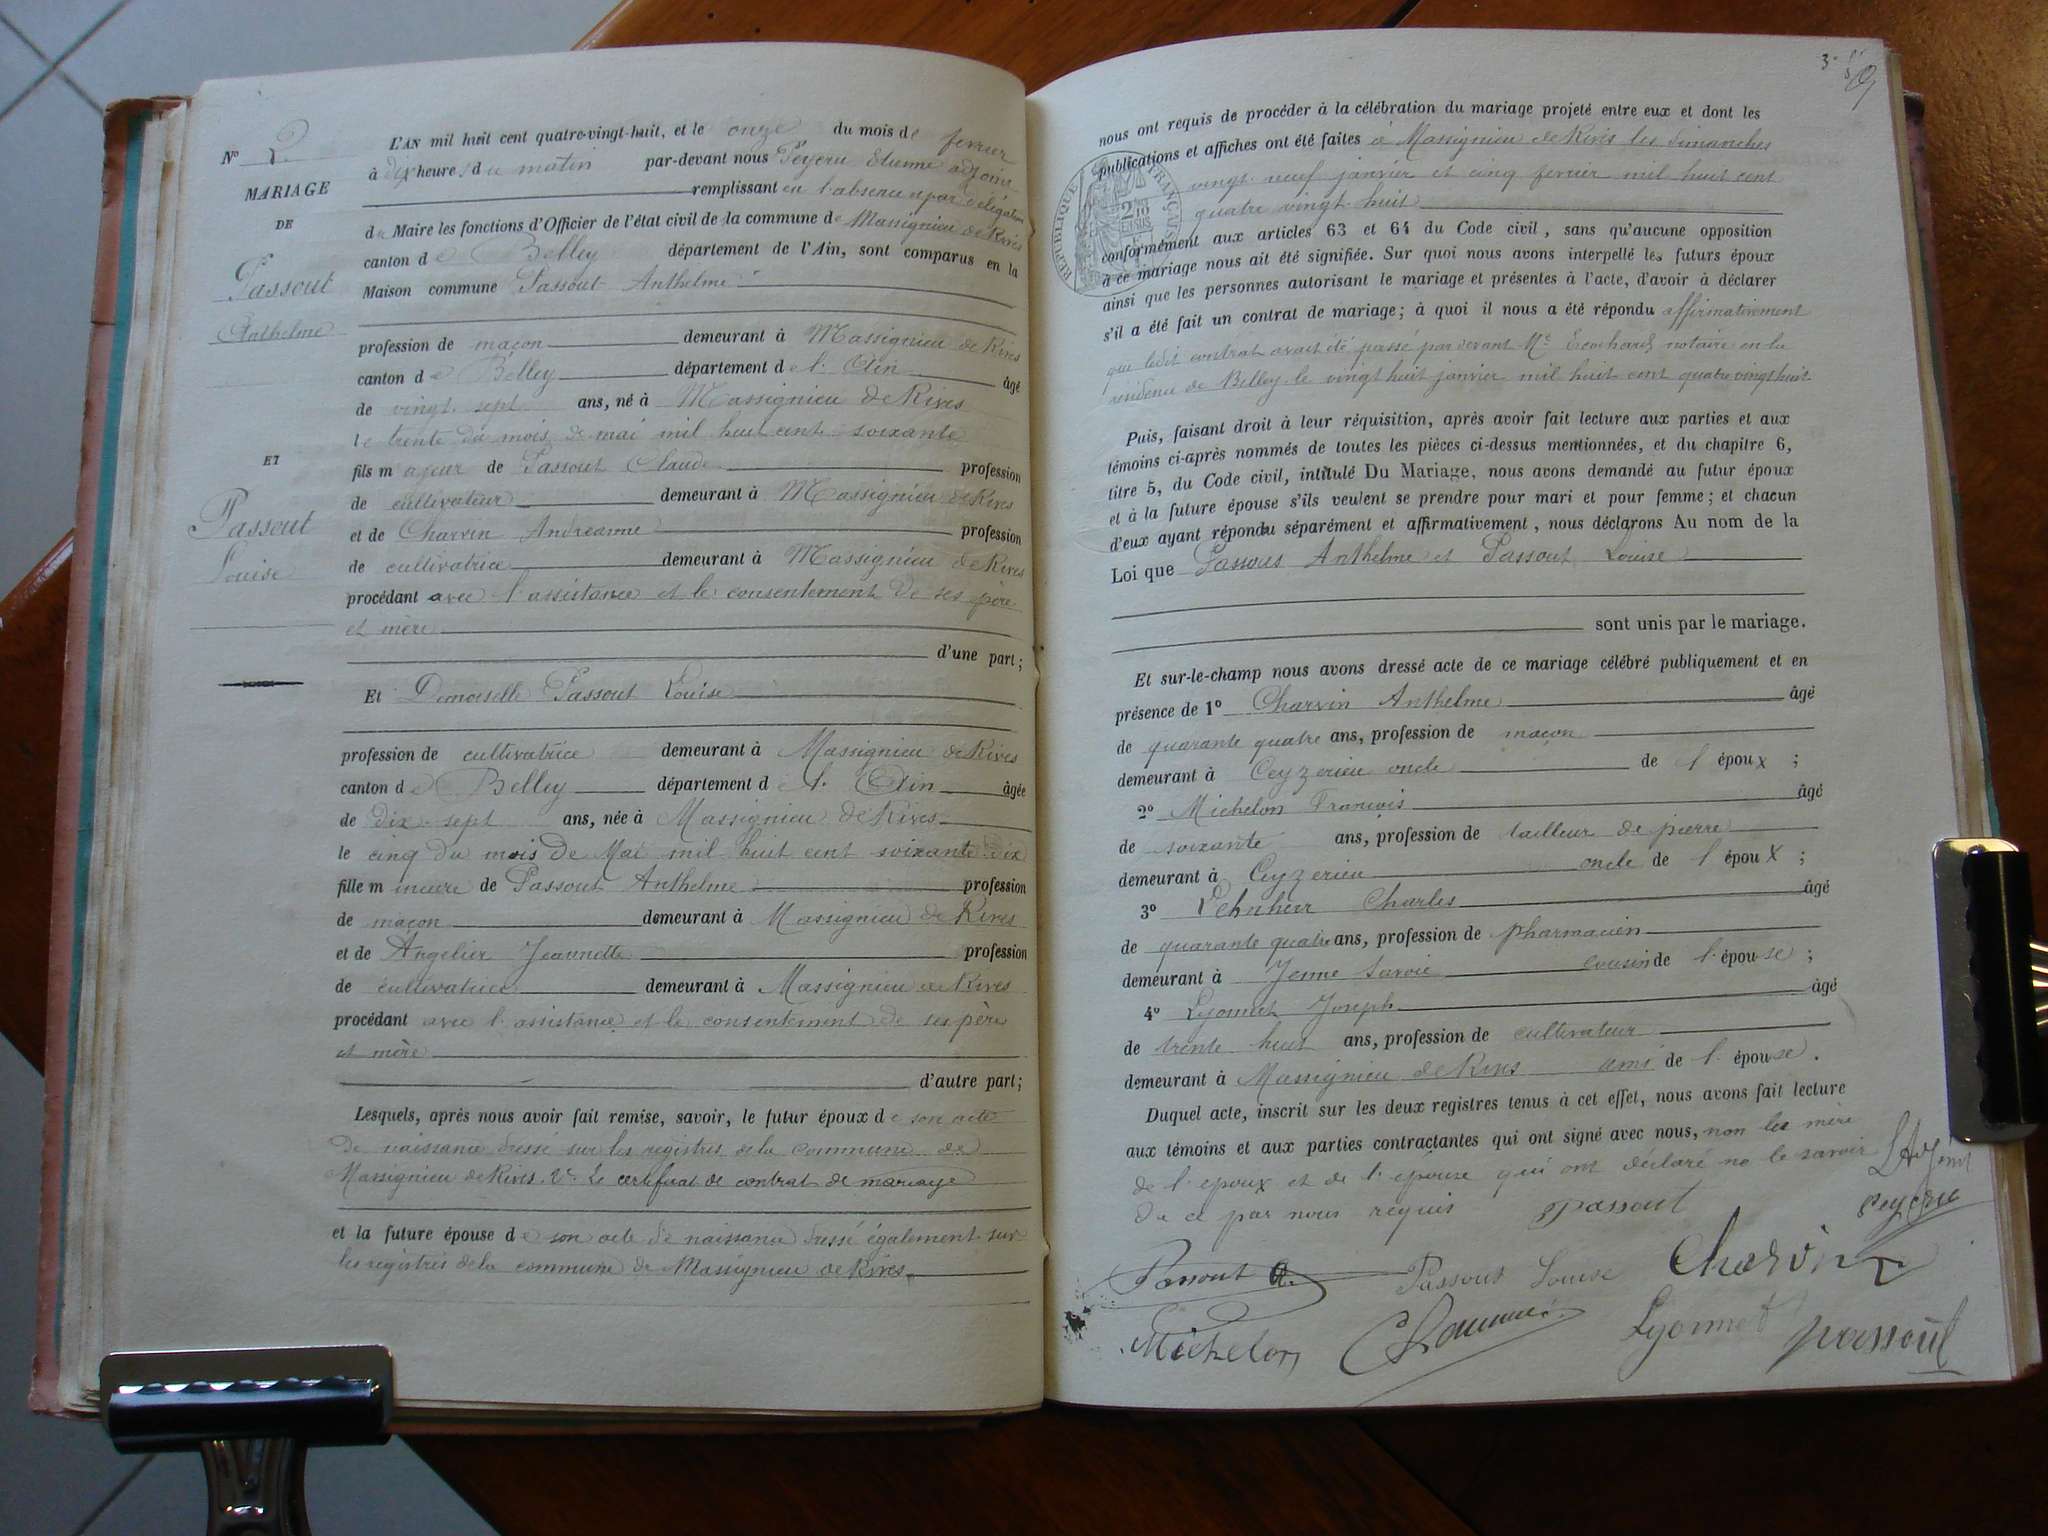 N° 2
MARIAGE
DE
Passout
Anthelme
ET
Passout
Louise
L'AN mil huit cent quatre-vingt-huit, et le onze du mois de fevrier
à dix heures du matin par-devant nous Peyeru Etienne adjoint
remplissant en l'absence par délégation
du Maire les fonctions d'Officier de l'état civil de la commune de Massignieu de Rives
canton de Belley département de l'Ain, sont comparus en la
Maison commune Passout Anthelme
profession de maçon demeurant à Massignieu de Rives
canton de Belley département de l'Ain âgé
de vingt-sept ans, né à Massignieu de Rives
le trente du mois de mai mil huit cent soixante
fils majeur de Passout Claude profession
de cultivateur demeurant à Massignieu de Rives
et de Charvin Andréanne profession
de cultivatrice demeurant à Massignieu de Rives
procédant avec l'assistance et le consentement de ses père
et mère
d'une part;
Et Demoiselle Passout Louise
profession de cultivatrice demeurant à Massignieu de Rives
canton de Belley département de l'Ain âgée
de dix-sept ans, née à Massignieu de Rives
le cinq du mois de Mai mil huit cent soixante dix
fille mineure de Passout Anthelme profession
de maçon demeurant à Massignieu de Rives
et de Angelier Jeannette profession
de cultivatrice demeurant à Massignieu de Rives
procédant avec l'assistance et le consentement de ses père
et mère
d'autre part;
Lesquels, après nous avoir fait remise, savoir, le futur époux de son acte
de naissance dressé sur les registres de la commune de
Massignieu de Rives. & Le certificat de contrat de mariage
et la future épouse de son acte de naissance dressé également sur
les registres de la commune de Massignieu de Rives.
3
nous ont requis de procéder à la célébration du mariage projeté entre eux et dont les
publications et affiches ont été faites à Massignieu de Rives les dimanches
vingt-neuf janvier et cinq fevrier mil huit cent
quatre vingt huit
conformément aux articles 63 et 64 du Code civil, sans qu'aucune opposition
à ce mariage nous ait été signifiée. Sur quoi nous avons interpellé les futurs époux
ainsi que les personnes autorisant le mariage et présentes à l'acte, d'avoir à déclarer
s'il a été fait un contrat de mariage; à quoi il nous a été répondu affirmativement
que ledit contrat avait été passé par devant Me notaire en la
résidence de Belley le vingt huit janvier mil huit cent quatre vingt huit
Puis, faisant droit à leur réquisition, après avoir fait lecture aux parties et aux
témoins ci-après nommés de toutes les pièces ci-dessus mentionnées, et du chapitre 6,
titre 5, du Code civil, intitulé Du Mariage, nous avons demandé au futur époux
et à la future épouse s'ils veulent se prendre pour mari et pour femme; et chacun
d'eux ayant répondu séparément et affirmativement, nous déclarons Au nom de la
Loi que Passout Anthelme et Passout Louise
sont unis par le mariage.
Et sur-le-champ nous avons dressé acte de ce mariage célébré publiquement et en
présence de 1° Charvin Anthelme âgé
de quarante quatre ans, profession de maçon
demeurant à Ceyzerieu oncle de l'époux ;
2° Michelon François âgé
de soixante ans, profession de tailleur de pierre
demeurant à Ceyzerieu oncle de l'époux ;
3° Charles âgé
de quarante quatre ans, profession de pharmacien
demeurant à Yenne Savoie cousin de l'épouse ;
4° Lyonnet Joseph âgé
de trente huit ans, profession de cultivateur
demeurant à Massignieu de Rives ami de l'épouse.
Duquel acte, inscrit sur les deux registres tenus à cet effet, nous avons fait lecture
aux témoins et aux parties contractantes qui ont signé avec nous, non les mère
de l'epoux et de l'epouse qui ont déclaré ne le savoir L'Adjoint
de ce par nous requis Passout Peyeru
Passout A. Passout Louise Charvin
Michelon Lyonnet passout